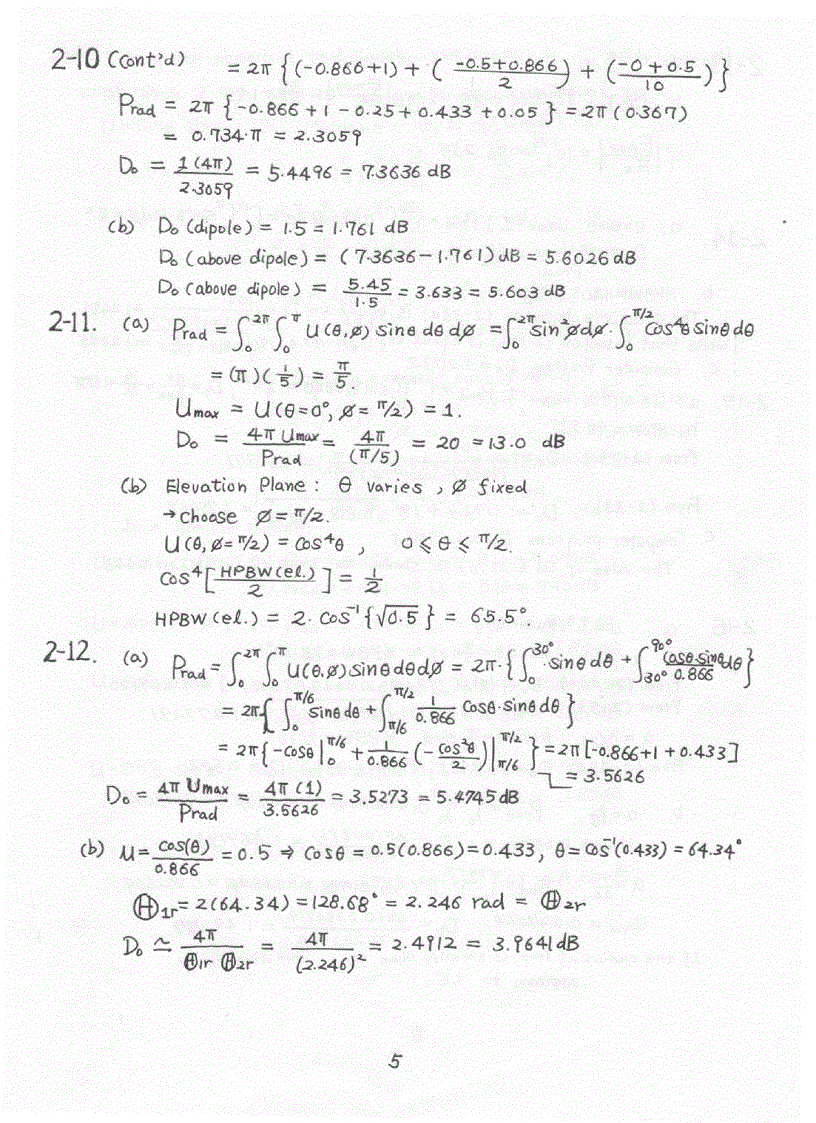 2-10 (Cont'd) = 2π { (-0.866+1) + ( (-0.5+0.866)/2 ) + ( (-0+0.5)/10 ) }
Prad = 2π { -0.866 + 1 - 0.25 + 0.433 + 0.05 } = 2π (0.367)
= 0.734·π = 2.3059
D₀ = 1(4π)/2.3059 = 5.4496 = 7.3636 dB
(b) D₀ (dipole) = 1.5 = 1.761 dB
D₀ (above dipole) = (7.3636 - 1.761) dB = 5.6026 dB
D₀ (above dipole) = 5.45/1.5 = 3.633 = 5.603 dB
2-11. (a) Prad = ∫₀^2π ∫₀^π U(θ,ø) sinθ dθ dø = ∫₀^2π sin²ø dø · ∫₀^π/2 cos⁴θ sinθ dθ
= (π)(1/5) = π/5.
Umax = U(θ=0°, ø=π/2) = 1.
D₀ = 4π Umax/Prad = 4π/(π/5) = 20 = 13.0 dB
(b) Elevation Plane : θ varies , ø fixed
→ Choose ø = π/2.
U(θ, ø=π/2) = cos⁴θ , 0 ⩽ θ ⩽ π/2.
cos⁴ [ HPBW(el.)/2 ] = 1/2
HPBW (el.) = 2· cos⁻¹ {√0.5 } = 65.5°
2-12. (a) Prad = ∫₀^2π ∫₀^π U(θ,ø) sinθ dθ dø = 2π· { ∫₀^30° sinθ dθ + ∫_30°^90° (cosθ·sinθ/0.866) dθ }
= 2π { ∫₀^π/6 sinθ dθ + ∫_π/6^π/2 (1/0.866) cosθ·sinθ dθ }
= 2π { -cosθ |₀^π/6 + (1/0.866) (-cos²θ/2) |_π/6^π/2 } = 2π [-0.866+1 + 0.433]
= 3.5626
D₀ = 4π Umax/Prad = 4π (1)/3.5626 = 3.5273 = 5.4745 dB
(b) U = cos(θ)/0.866 = 0.5 ⇒ cosθ = 0.5(0.866) = 0.433, θ = cos⁻¹(0.433) = 64.34°
Θ₁r = 2(64.34) = 128.68° = 2.246 rad = Θ₂r
D₀ ≃ 4π/(Θ₁r Θ₂r) = 4π/(2.246)² = 2.4912 = 3.9641 dB
5